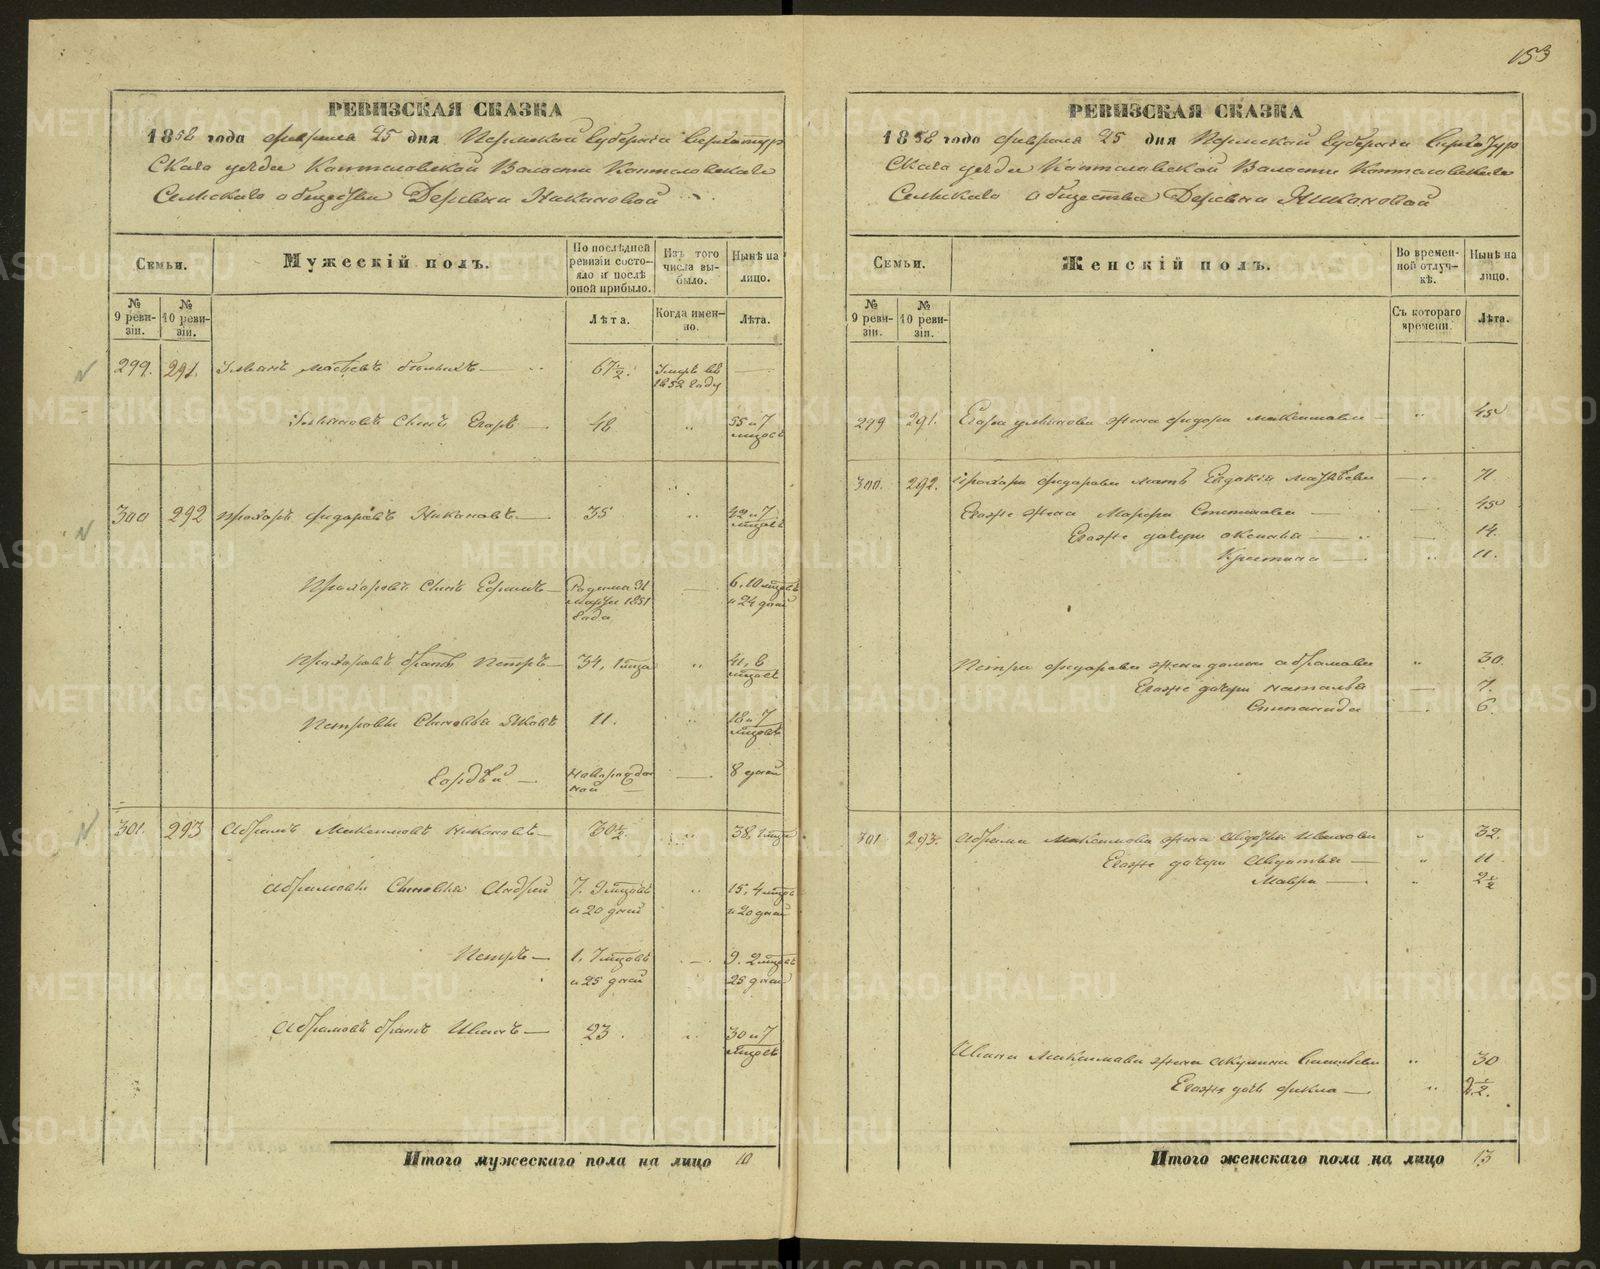 153
РЕВИЗСКАЯ СКАЗКА
1858 года февраля 25 дня Пермской Губерніи Верхотур
Скаго уѣзда Коптеловской Волости Коптеловскаго
Сельскаго общества Деревни Никоновой
Семьи.
Мужескій полъ.
По послѣдней ревизіи состояло и послѣ оной прибыло.
Изъ того числа выбыло.
Нынѣ на лицо.
№ 9 ревизіи.
№ 10 ревизіи.
Лѣта.
Когда именно.
Лѣта.
299. 291. 67½. Умръ въ 1852 году
сынъ Егоръ 48 „ 55 и 7 мѣсяцъ
300 292 Прохоръ Фидоровъ Никоновъ 35 „ 42 и 7 мѣсяцъ
Прохоровъ сынъ Ефимъ Родился 31 марта 1851 года 6. 10 мѣсяцъ и 24 дней
Прохоровъ братъ Петръ 34, 1 мѣся „ 41, 8 мѣсяцъ
Петровы Сыновья Яковъ 11. „ 18 и 7 мѣсяцъ
Гордѣй Новорожденной 8 дней
301. 293 Абрамъ Максимовъ Никоновъ 30½ „ 38. 1 мѣся
Абрамовы Сыновья Андрей 7. 9 мѣсяцъ и 20 дней „ 15, 4 мѣсяцъ и 20 дней
Петръ 1, 7 мѣсяцъ и 25 дней 9. 2 мѣсяцъ 25 дней
Абрамовъ братъ Иванъ 23. „ 30 и 7 мѣсяцъ
Итого мужескаго пола на лицо 10
РЕВИЗСКАЯ СКАЗКА
1858 года февраля 25 дня Пермской Губерніи Верхотур
Скаго уѣзда Коптеловской Волости Коптеловскаго
Сельскаго общества Деревни Никоновой
Семьи.
Женскій полъ.
Во временной отлучкѣ.
Нынѣ на лицо.
№ 9 ревизіи.
№ 10 ревизіи.
Съ котораго времени.
Лѣта.
299 291. Егора жена Фидора Максимова „ 45
300. 292. Прохора Фидорова мать Евдокія Матвѣева 71
Егоже жена Марфа Степанова 45
Егоже дочери Аксинья 14.
Кристина „ 11.
Петра Фидорова жена Домна Абрамова „ 30.
Егоже дочери Наталья 7.
Степанида 6.
301 293. Абрама Максимова жена Авдотья Иванова „ 32.
Егоже дочери Авдотья „ 11
Мавра „ 2½
Ивана Максимова жена Акулина Савельева „ 30
Егоже дочь Фикла „ 2½.
Итого женскаго пола на лицо 13
METRIKI.GASO-URAL.RU